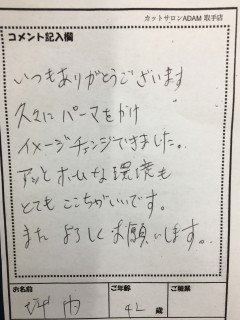 カットサロンADAM 取手店
コメント記入欄
いつもありがとうございます
久々に パーマをかけ
イメージチェンジできました。
アットホームな環境も
とてもここちがいいです。
また よろしくお願いします。
お名前
坪内
ご年齢
42 歳
ご職業